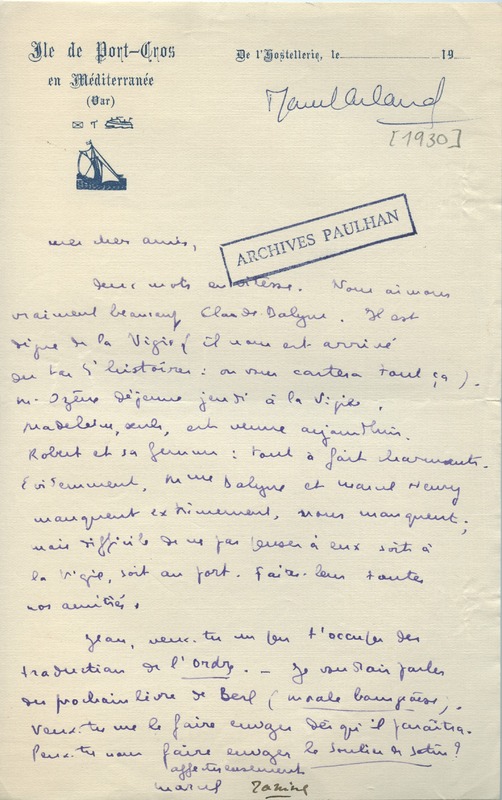 Ile de Port-Cros
en Méditerranée
(Var)
De l'Hostellerie, le 19
Marcel Arland
[1930]
ARCHIVES PAULHAN
mes chers amis,
Deux mots en vitesse. Nous aimons
vraiment beaucoup Claude Dalyne. Il est
digne de la Vigie (il nous est arrivé
du tas d'histoires : on vous contera tout ça).
M. Ozène déjeune jeudi à la Vigie.
Madeleine, seule, est venue aujourd'hui.
Robert et sa femme : tout à fait charmants.
Evidemment, Mme Dalyne et Marcel Henry
manquent extrêmement, nous manquent ;
mais difficile de ne pas penser à eux soit à
la Vigie, soit au port. Faites-leur toutes
nos amitiés.
Jean, veux-tu un peu t'occuper des
traduction de l'Ordre. — Je voudrais parler
du prochain livre de Berl (morale bourgeoise).
Veux-tu me le faire envoyer dès qu'il paraîtra.
Peux-tu nous faire envoyer le Soulier de Satin ?
affectueusement
marcel Janine